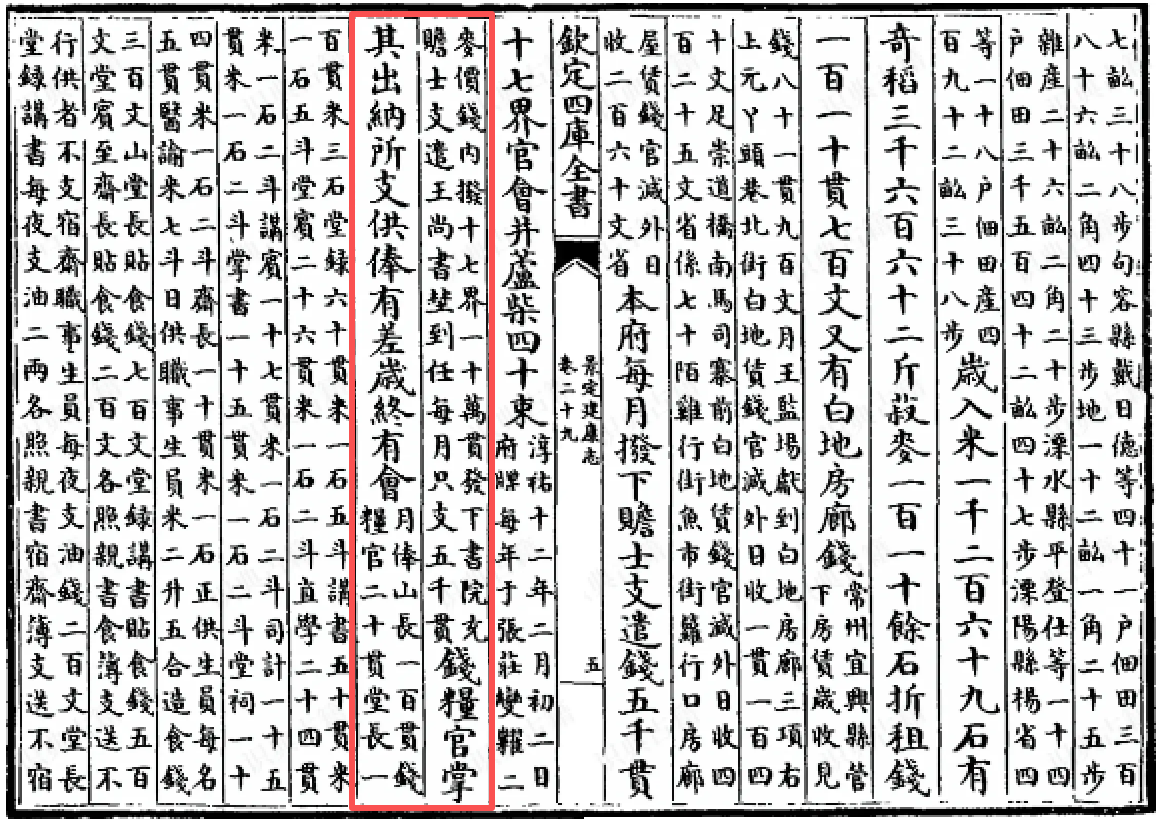 七畝三十八步句容縣戴日德等四十一戶佃田三百
八十六畝二角四十三步地一十二畝一角二十五步
雜產二十六畝二角二十步溧水縣平登仕等一十四
戶佃田三千五百四十二畝四十七步溧陽縣楊省四
等一十八戶佃田產四
百九十二畝三十八步
歲入米一千二百六十九石有
奇稻三千六百六十二斤菽麥一百一十餘石折租錢
一百一十貫七百文又有白地房廊錢
常州宜興縣管
下房賃歲收見
錢八十一貫九百文月王監場獻到白地房廊三項右
上元丫頭巷北街白地賃錢官減外日收一貫一百四
十文足崇道橋南馬司寨前白地賃錢官減外日收四
百二十五文省係七十陌雞行街魚市街籮行口房廊
屋賃錢官減外日
收二百六十文省
本府每月撥下贍士支遣錢五千貫
欽定四庫全書
景定建康志
卷二十九
五
十七界官會并蘆柴四十束
淳祐十二年二月初二日
府牒每年于張莊變糴二
麥價錢內撥十七界一十萬貫發下書院充
贍士支遣王尚書埜到任每月只支五千貫
錢糧官掌
其出納所支供俸有差歲終有會
月俸山長一百貫錢
糧官二十貫堂長一
百貫米三石堂録六十貫米一石五斗講書五十貫米
一石五斗堂賓二十六貫米一石二斗直學二十四貫
米一石二斗講賓一十七貫米一石二斗司計一十五
貫米一石二斗掌書一十五貫米一石二斗堂祠一十
四貫米一石二斗齋長一十貫米一石正供生員每名
五貫醫諭米七斗日供職事生員米二升五合造食錢
三百文山堂長貼食錢七百文堂録講書貼食錢五百
文堂賓至齋長貼食錢二百文各照親書食簿支送不
行供者不支宿齋職事生員每夜支油錢二百文堂長
堂録講書每夜支油二兩各照親書宿齋簿支送不宿